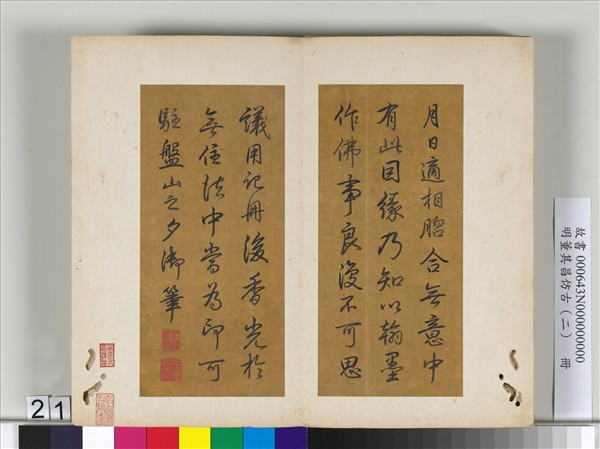 月日適相脗合無意中
有此因緣乃知以翰墨
作佛事良復不可思
議用記冊後香光於
無住法中當為印可
駐盤山之夕御筆
故書 000643N000000000
明董其昌仿古（二） 冊
21